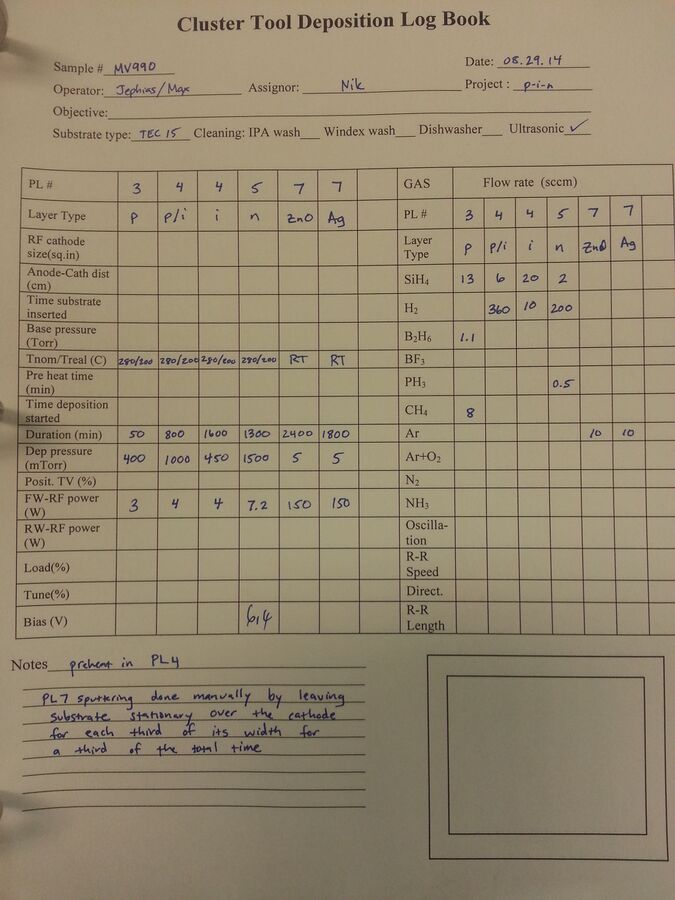 Cluster Tool Deposition Log Book
Sample # MV990 Date: 08.29.14
Operator: Jephias/Max Assignor: Nik Project : p-i-n
Objective:
Substrate type: TEC 15 Cleaning: IPA wash Windex wash Dishwasher Ultrasonic ✓
PL # 3 4 4 5 7 7 GAS Flow rate (sccm)
Layer Type p p/i i n ZnO Ag PL # 3 4 4 5 7 7
RF cathode size(sq.in) Layer Type p p/i i n ZnO Ag
Anode-Cath dist (cm) SiH4 13 6 20 2
Time substrate inserted H2 360 10 200
Base pressure (Torr) B2H6 1.1
Tnom/Treal (C) 280/200 280/200 280/200 280/200 RT RT BF3
Pre heat time (min) PH3 0.5
Time deposition started CH4 8
Duration (min) 50 800 1600 1300 2400 1800 Ar 10 10
Dep pressure (mTorr) 400 1000 450 1500 5 5 Ar+O2
Posit. TV (%) N2
FW-RF power (W) 3 4 4 7.2 150 150 NH3
RW-RF power (W) Oscilla-tion
Load(%) R-R Speed
Tune(%) Direct.
Bias (V) 6,4 R-R Length
Notes preheat in PL4
PL7 sputtering done manually by leaving
substrate stationary over the cathode
for each third of its width for
a third of the total time